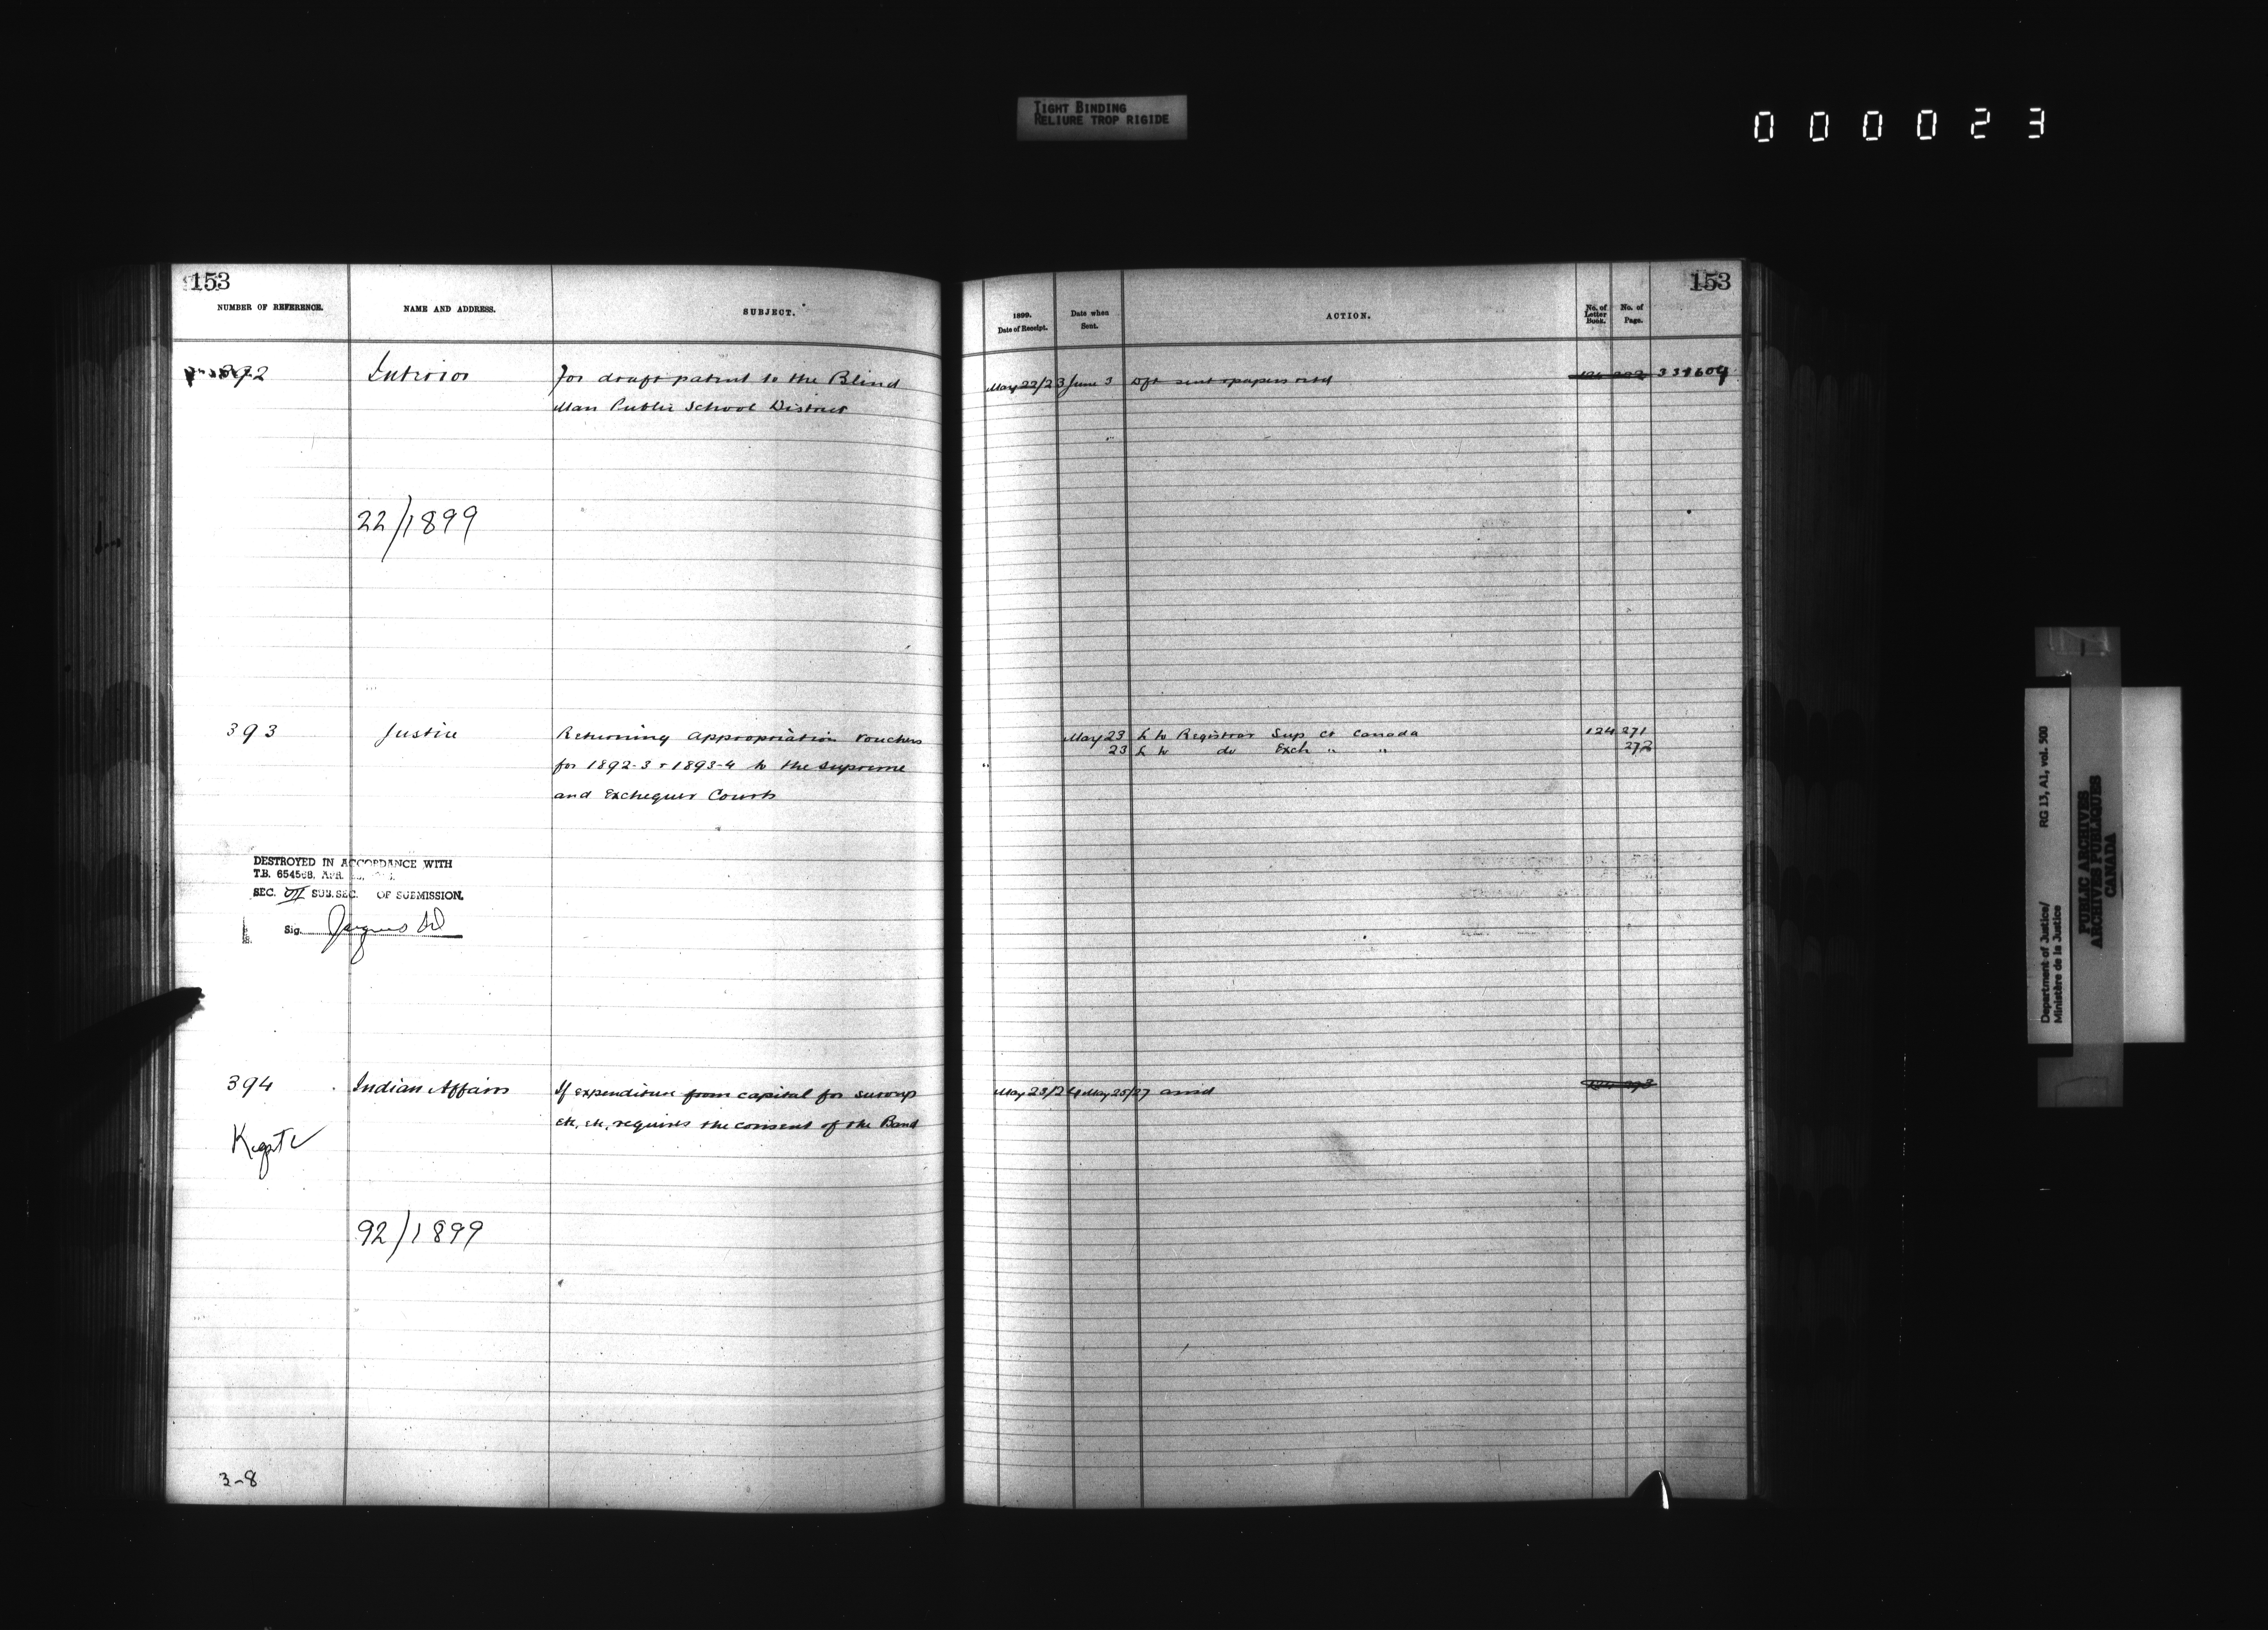 TIGHT BINDING
RELIURE TROP RIGIDE
000023
153
NUMBER OF REFERENCE.
NAME AND ADDRESS.
SUBJECT.
392
Interior
for draft patent to the Blind
Man Public School District
22/1899
393
Justice
Returning Appropriation Vouchers
for 1892-3 & 1893-4 to the Supreme
and Exchequer Courts
DESTROYED IN ACCORDANCE WITH
T.B. 654568, APR.
SEC. VII SUB.SEC. OF SUBMISSION.
Sig.
394
Indian Affairs
If expenditure from capital for surveys
etc, etc, requires the consent of the Band
92/1899
3-8
153
1899.
Date of Receipt.
Date when
Sent.
ACTION.
No. of
Letter
Book.
No. of
Page.
May 22/23 June 3 Dft sent & papers retd
May 23 L to Registrar Sup Ct Canada 124 271
23 L to do Exch " " 272
May 23/24 May 25/27 ansd
Department of Justice/
Ministère de la Justice
RG 13, A1, vol. 500
PUBLIC ARCHIVES
ARCHIVES PUBLIQUES
CANADA